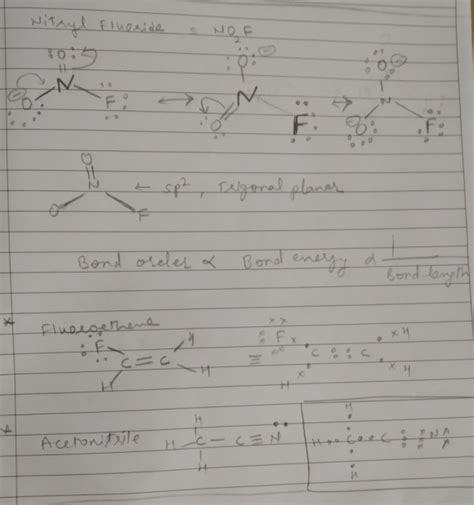 Nitryl Fluoride = NO2F
:O: :O: ⊖ :O: ⊖
N N N
⊖ O F O F O F
O
N ← sp², Trigonal planar
O F
Bond order ∝ Bond energy ∝ 1 / Bond length
* Fluoroethene
F H F H
C = C ≡ C :: C
H H H H
* Acetonitrile
H H
H - C - C ≡ N H C C N
H H